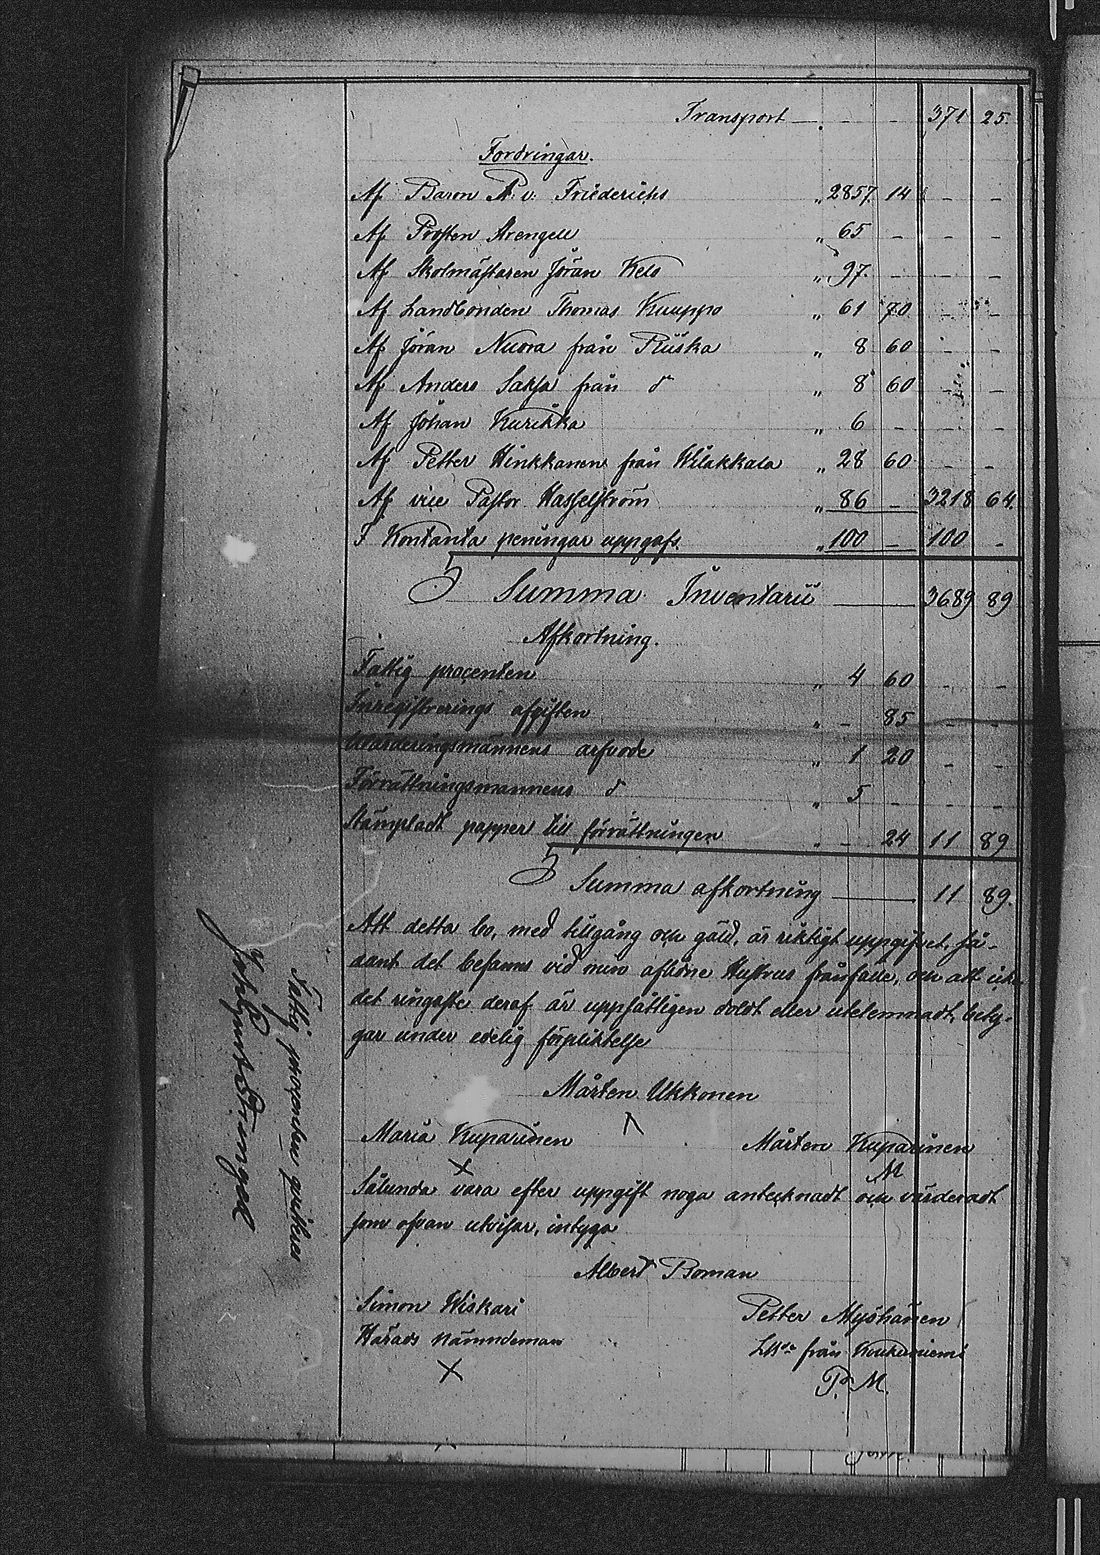 Transport — „ – – 371 25.
Fordringar.
Af Baron A. v. Friederichs „ 2857. 14 – –
Af Prosten Arengell „ 65 – – –
Af Skolmästaren Jöran Kelo „ 97. – – –
Af Landbonden Thomas Kuuppo „ 61 70 – –
Af Jöran Nuora från Riiska „ 8 60 – –
Af Anders Saksa från d° „ 8 60 – –
Af Johan Kurikka „ 6 – – –
Af Petter Hinkkanen från Wilakkala „ 28 60 – –
Af vice Pastor Hasselström „ 86 – 3218 64.
I Kontanta peningar uppgafs „ 100 – 100 –
Summa Inventarii — 3689 89
Afkortning.
Fattig procenten „ 4 60 – –
Inregistrerings afgiften „ – 85 – –
Wärderingsmännens arfvode „ 1 20 – –
Förrättningsmannens d° „ 5 – – –
Stämpladt papper till förrättningen „ – 24 11 89
Summa afkortning — 11 89.
Att detta bo, med tillgång och gäld, är riktigt uppgifvet, så-
dant det befanns vid min aflidne Hustrus frånfälle, och att icke
det ringaste deraf är uppsåtligen doldt eller utelemnadt, bety-
gar under edelig förpliktelse
Mårten Ukkonen
Maria Kuparinen Mårten Kuparinen
X M
Sålunda vara efter uppgift noga antecknadt och värderadt
som ofvan utvisar, intyga
Albert Boman
Simon Wiskari Petter Myöhänen
Härads Nämndeman från Koukuniemi
X P. M.
Fattig procenten qvitteras